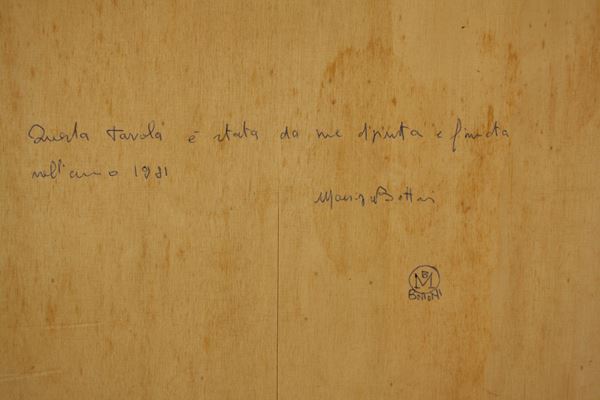 Questa tavola è stata da me dipinta e finita
nell'anno 1981
Maurizio Bottoni
B
M
BOTTONI